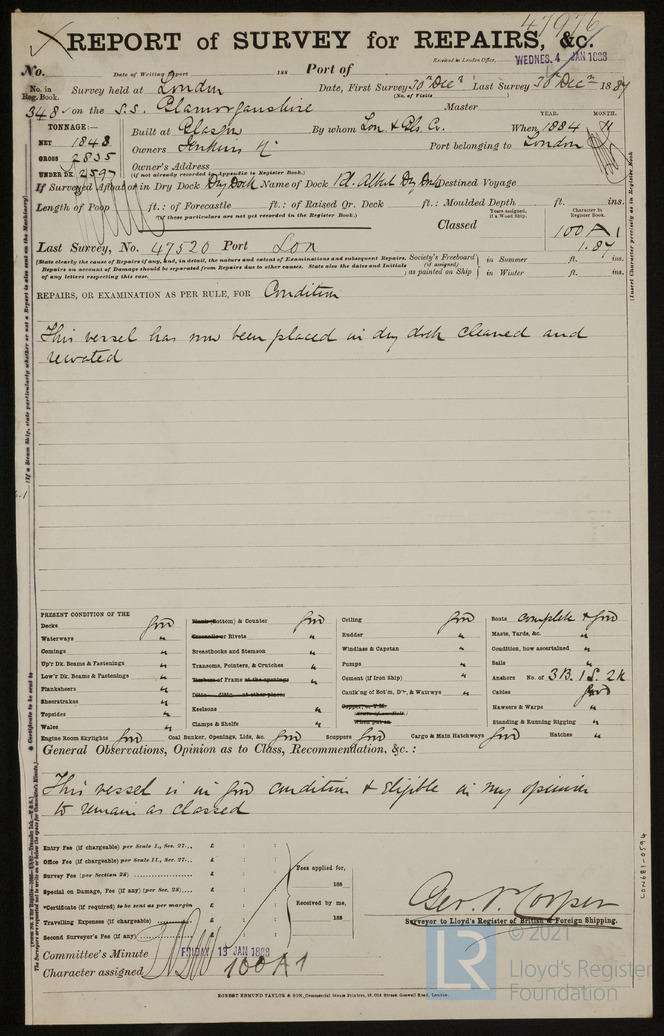 47976
REPORT of SURVEY for REPAIRS, &c.
Received in London Office, WEDNES. 4 JAN 1888
No. Date of Writing Report 188 Port of
No. in Reg. Book. Survey held at London Date, First Survey 30th Decr Last Survey 30th Decr 1887
(No. of Visits )
348 on the S.S. Glamorganshire Master
TONNAGE:— YEAR. MONTH.
NET 1843 Built at Glasgow By whom Lon. & Gls. Co. When 1884
GROSS 2835 Owners Jenkins Port belonging to London
UNDER DK. 2597 Owner's Address
(if not already recorded in Appendix to Register Book.)
If Surveyed Afloat or in Dry Dock Dry Dock Name of Dock Rl. Albert Dry Dock Destined Voyage
Length of Poop ft.: of Forecastle ft.: of Raised Qr. Deck ft.: Moulded Depth ft. ins.
(If these particulars are not yet recorded in the Register Book.)
Years assigned, if a Wood Ship. Character in Register Book.
Classed 100 A 1
1.87
Last Survey, No. 47520 Port Lon
(State clearly the cause of Repairs if any, and, in detail, the nature and extent of Examinations and subsequent Repairs. Repairs on account of Damage should be separated from Repairs due to other causes. State also the dates and Initials of any letters respecting this case.
Society's Freeboard (if assigned) as painted on Ship in Summer ft. ins.
in Winter ft. ins.
REPAIRS, OR EXAMINATION AS PER RULE, FOR Condition
This vessel has now been placed in dry dock cleaned and
recoated
PRESENT CONDITION OF THE
Decks Good
Waterways "
Comings "
Up'r Dk. Beams & Fastenings "
Low'r Dk. Beams & Fastenings "
Planksheers "
Sheerstrakes "
Topsides "
Wales "
Plank (Bottom) & Counter Good
Treenails or Rivets "
Breasthooks and Stemson "
Transoms, Pointers, & Crutches "
Timbers of Frame at the openings "
Ditto ditto at other places
Keelsons "
Clamps & Shelfs "
Ceiling Good
Rudder "
Windlass & Capstan "
Pumps "
Cement (if Iron Ship) "
Caulk'ng of Bot'm, D'k, & Watrways "
Copper, or Y.M.
When put on
Boats complete & Good
Masts, Yards, &c. "
Condition, how ascertained "
Sails "
Anchors No. of 3B. 1S. 2K
Cables Good
Hawsers & Warps "
Standing & Running Rigging "
Engine Room Skylights Good Coal Bunker, Openings, Lids, &c. Good Scuppers Good Cargo & Main Hatchways Good Hatches "
General Observations, Opinion as to Class, Recommendation, &c.:
This vessel is in Good condition & eligible in my opinion
to remain as classed
Entry Fee (if chargeable) per Scale I., Sec. 27... £ : :
Office Fee (if chargeable) per Scale II., Sec. 27... £ : :
Survey Fee (per Section 28) £ : :
Special on Damage, Fee (if any) (per Sec. 28) £ : :
*Certificate (if required) to be sent as per margin £ : :
Travelling Expenses (if chargeable) £ : :
Second Surveyor's Fee (if any) £ : :
Fees applied for, 188
Received by me, 188
Geo. P. Cooper
Surveyor to Lloyd's Register of British & Foreign Shipping.
Committee's Minute FRIDAY 13 JAN 1888
Character assigned 100 A 1
ROBERT EDMUND TAYLOR & SON, Commercial Steam Printers, 19, Old Street, Goswell Road, London.
(If a Steam Ship, state particularly whether or not a Report is also sent on the Machinery)
(Insert Character precisely as in Register Book)
LON681-0594
LR
© 2021
Lloyd's Register
Foundation